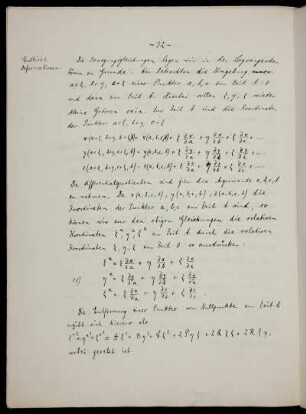 - 32 -
Endliche
Deformationen.
Die Bewegungsgleichungen legen wir in der Lagrangeschen
Form zu Grunde. Wir betrachten die Umgebung
a+ξ, b+η, c+ζ eines Punktes a, b, c zur Zeit t = 0
und dann zur Zeit t. Hierbei sollen ξ, η, ζ wieder
kleine Grössen sein. Zur Zeit t sind die Koordinaten
der Punkte a+ξ, b+η, c+ζ
x(a+ξ, b+η, c+ζ,t) = x(a,b,c,t) + ξ ∂x/∂a + η ∂x/∂b + ζ ∂x/∂c ....
y(a+ξ, b+η, c+ζ,t) = y(a,b,c,t) + ξ ∂y/∂a + η ∂y/∂b + ζ ∂y/∂c ....
z(a+ξ, b+η, c+ζ,t) = z(a,b,c,t) + ξ ∂z/∂a + η ∂z/∂b + ζ ∂z/∂c ....
Die Differentialquotienten sind für die Argumente a, b, c, t
zu nehmen. Da x(a,b,c,t), y(a,b,c,t), z(a,b,c,t) die
Koordinaten des Punktes a, b, c zur Zeit t sind, so
können wir aus den obigen Gleichungen die relativen
Koordinaten ξ* η* ζ* zur Zeit t durch die relativen
Koordinaten ξ, η, ζ zur Zeit 0 so ausdrücken:
ξ* = ξ ∂x/∂a + η ∂x/∂b + ζ ∂x/∂c
η* = ξ ∂y/∂a + η ∂y/∂b + ζ ∂y/∂c
ζ* = ξ ∂z/∂a + η ∂z/∂b + ζ ∂z/∂c
Die Entfernung eines Punktes vom Nullpunkte zur Zeit t
ergibt sich hieraus als
ξ*² + η*² + ζ*² = Aξ² + Bη² + Cζ² + 2Pηζ + 2Qζξ + 2Rξη,
wobei gesetzt ist